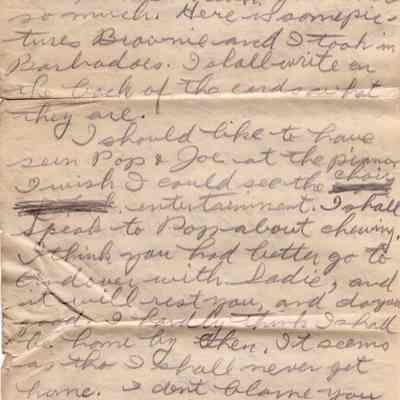 so much. Here is some pic-
tures Brownie and I took in
Barbados. I shall write on
the back of the cards what
they are.
I should like to have
seen Pop & Joe at the pianner
I wish I could see the choir
entertainment. I shall
speak to Pop about chewing.
I think you had better go to
with Sadie, and
it will rest you, and do you
good. I hardly think I shall
be home by then. It seems
as tho I shall never get
home. I don't blame you